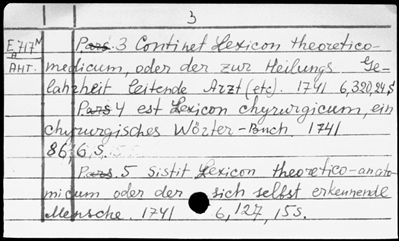 3
E 717 N Pars. 3 Continet Lexicon theoretico-
A
AHT. medicum, oder der zur Heilungs Ge-
lahrheit leitende Arzt (etc). 1741 6,320,24 S
Pars 4 est Lexicon chyrurgicum, ein
chyrurgisches Wörter-Buch. 1741
86, 6, S.
Pars. 5 Sistit Lexicon theoretico-anato
micum oder der sich selbst erkennende
Mensche. 1741 6, 127, 15 S.